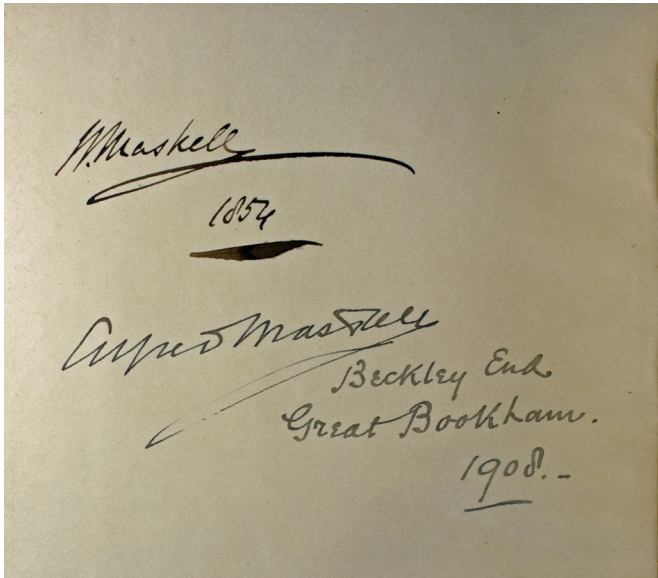 W. Maskell
1854
Alfred Maskell
Beckley End
Great Bookham.
1908.-